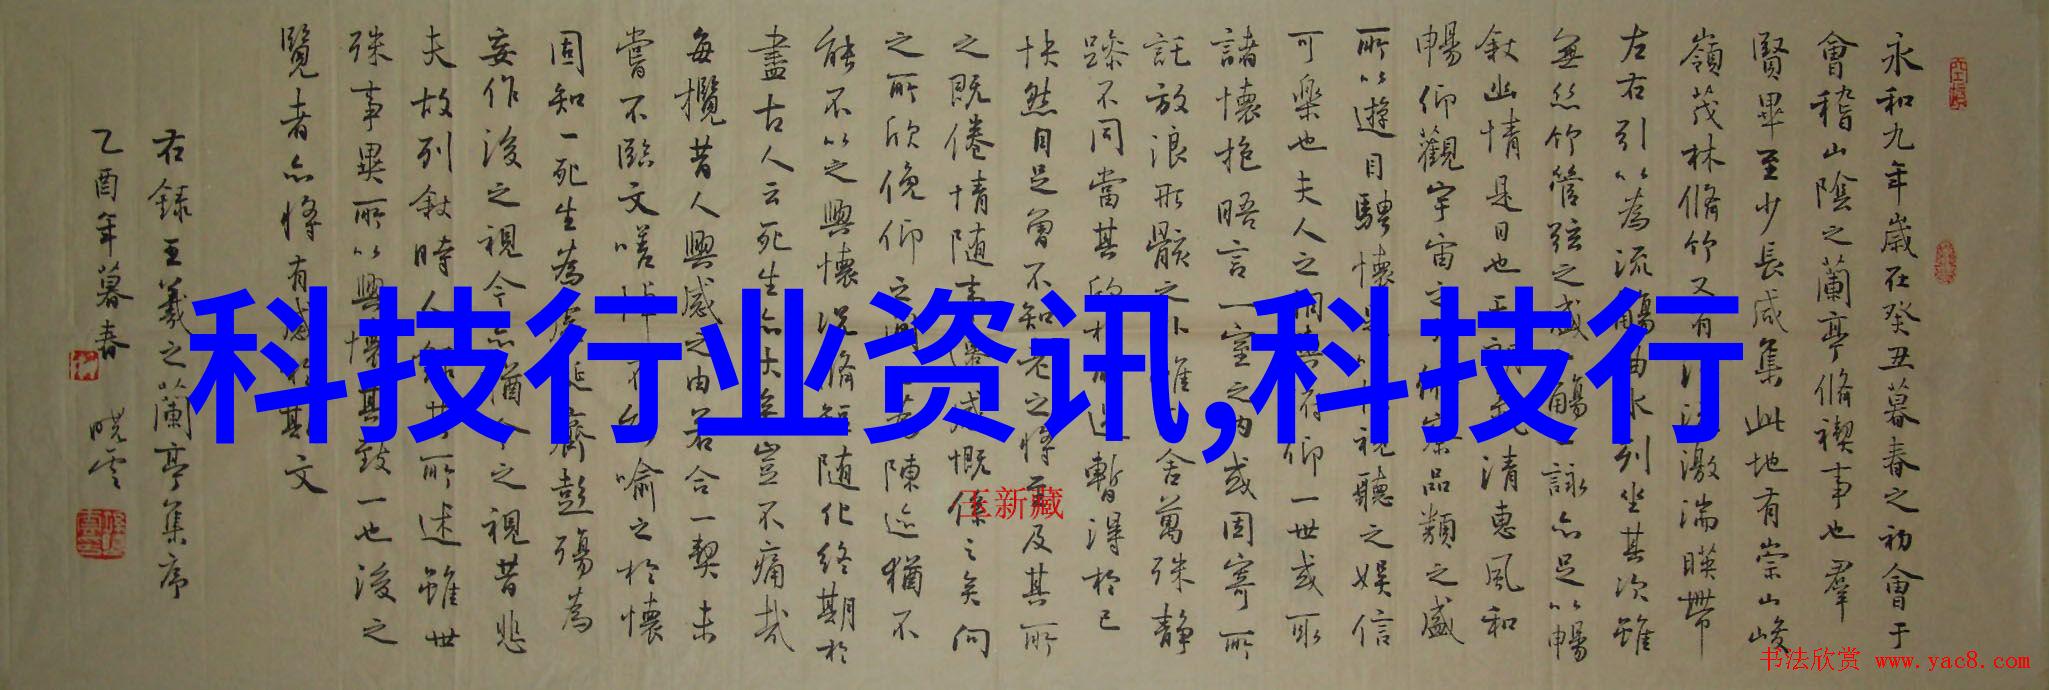 永和九年歲在癸丑暮春之初會于
會稽山陰之蘭亭脩禊事也羣
賢畢至少長咸集此地有崇山峻
嶺茂林脩竹又有清流激湍暎帶
左右引以為流觴曲水列坐其次雖
無絲竹管弦之盛一觴一詠亦足以暢
敘幽情是日也天朗氣清惠風和
暢仰觀宇宙之大俯察品類之盛
所以遊目騁懷足以極視聽之娛信
可樂也夫人之相與俯仰一世或取
諸懷抱晤言一室之內或因寄所
託放浪形骸之外雖趣舍萬殊静
躁不同當其欣於所遇暫得於己
快然自足曾不知老之將至及其所
之既倦情随事遷感慨係之矣向
之所欣俛仰之間以為陳迹猶不
能不以之興懷況脩短随化終期於
盡古人云死生亦大矣豈不痛哉
每攬昔人興感之由若合一契未
嘗不臨文嗟悼不能喻之於懷
固知一死生為虛誕齊彭殤為
妄作後之視今亦猶今之視昔悲
夫故列敘時人錄其所述雖世
殊事異所以興懷其致一也後之
覽者亦將有感於斯文
右錄王羲之蘭亭集序
乙酉年暮春 曉雲
科技行业资讯,科技行
王新藏
书法欣赏 www.yac8.com